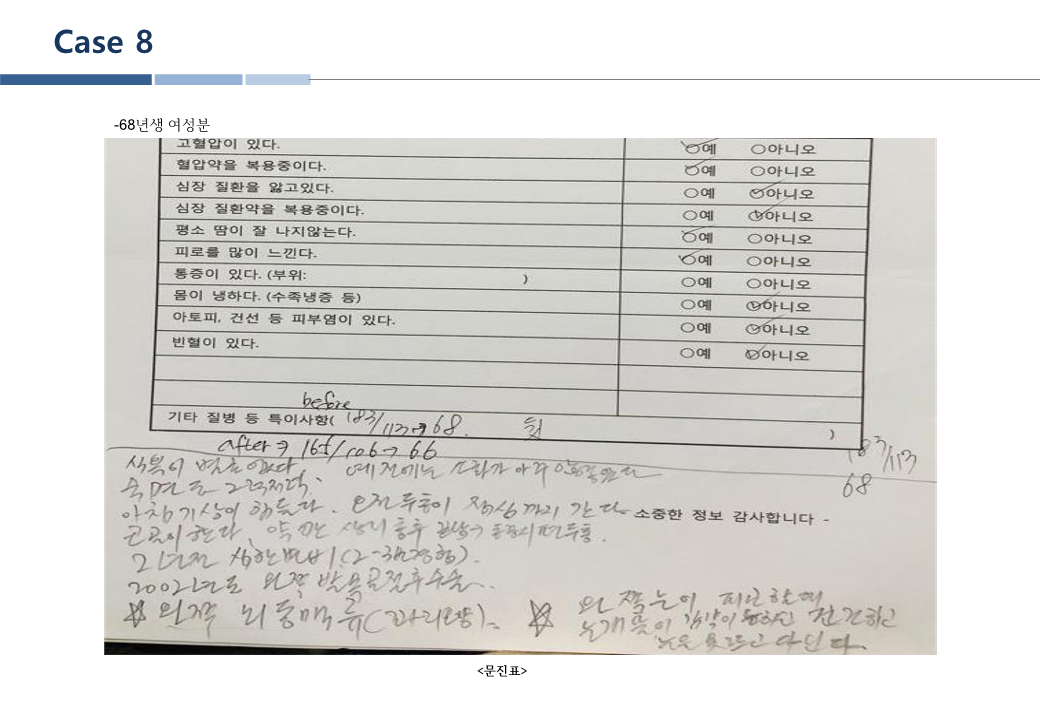 Case 8
-68년생 여성분
고혈압이 있다. 예 아니오
혈압약을 복용중이다. 예 아니오
심장 질환을 앓고있다. 예 아니오
심장 질환약을 복용중이다. 예 아니오
평소 땀이 잘 나지않는다. 예 아니오
피로를 많이 느낀다. 예 아니오
통증이 있다. (부위: ) 예 아니오
몸이 냉하다. (수족냉증 등) 예 아니오
아토피, 건선 등 피부염이 있다. 예 아니오
빈혈이 있다. 예 아니오
before
기타 질병 등 특이사항( 183/113 → 68. )
after → 165/106 → 66
183/113
68
예전에는 소화가 아주
수면은 그럭저럭.
아침 기상이 힘들다. 오전 두통이 점심까지 간다
소중한 정보 감사합니다 -
2년전 심한변비
2002년도 왼쪽 발목골절후수술.
☆ 왼쪽 뇌동맥류(꽈리모양).
☆ 왼쪽눈이 피곤할때
눈을 못뜨고 다닌다.
<문진표>